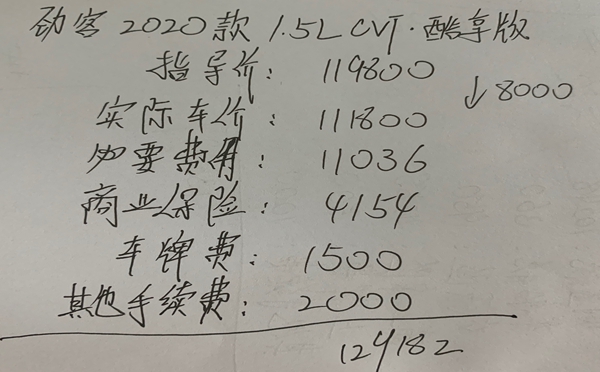 劲客2020款1.5L CVT·酷享版
指导价: 119800
↓8000
实际车价: 111800
必要费用: 11036
商业保险: 4154
车牌费: 1500
其他手续费: 2000
129182